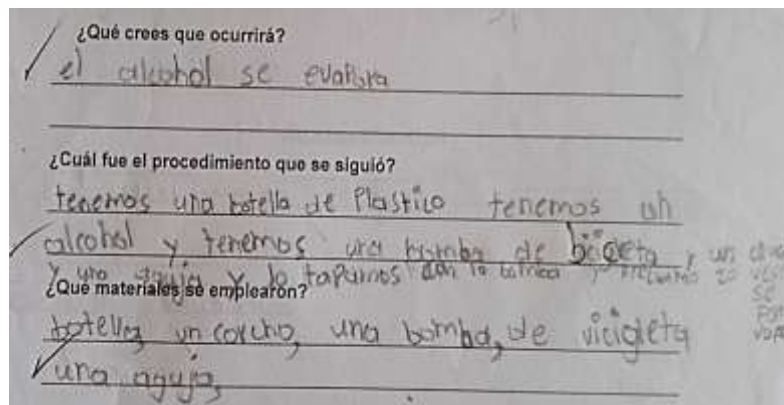 ¿Qué crees que ocurrirá?
el alcohol se evapora
¿Cuál fue el procedimiento que se siguió?
tenemos una botella de Plastico tenemos un
alcohol y tenemos una bomba de bicicleta y un
y una aguja y lo tapamos con la bomba y
¿Qué materiales se emplearon?
botella, un corcho, una bomba, de vicigleta
una aguja,